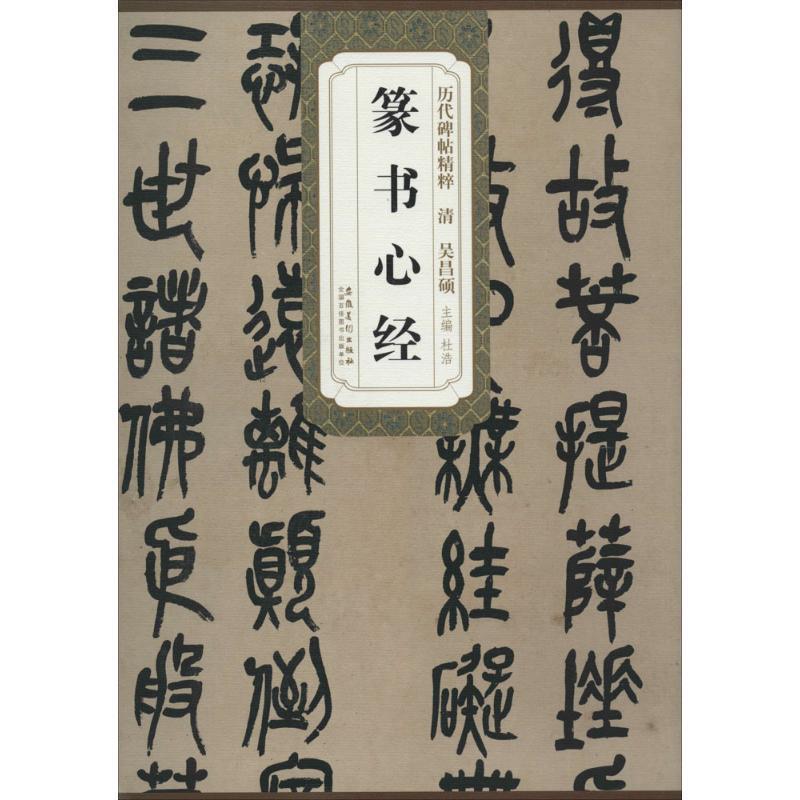 历代碑帖精粹 清 吴昌硕
主编 杜浩
篆书心经
安徽美术出版社
全国百佳图书出版单位
得故菩提薩埵
故心無絓礙無
恐怖遠離顛倒
三世諸佛依般若